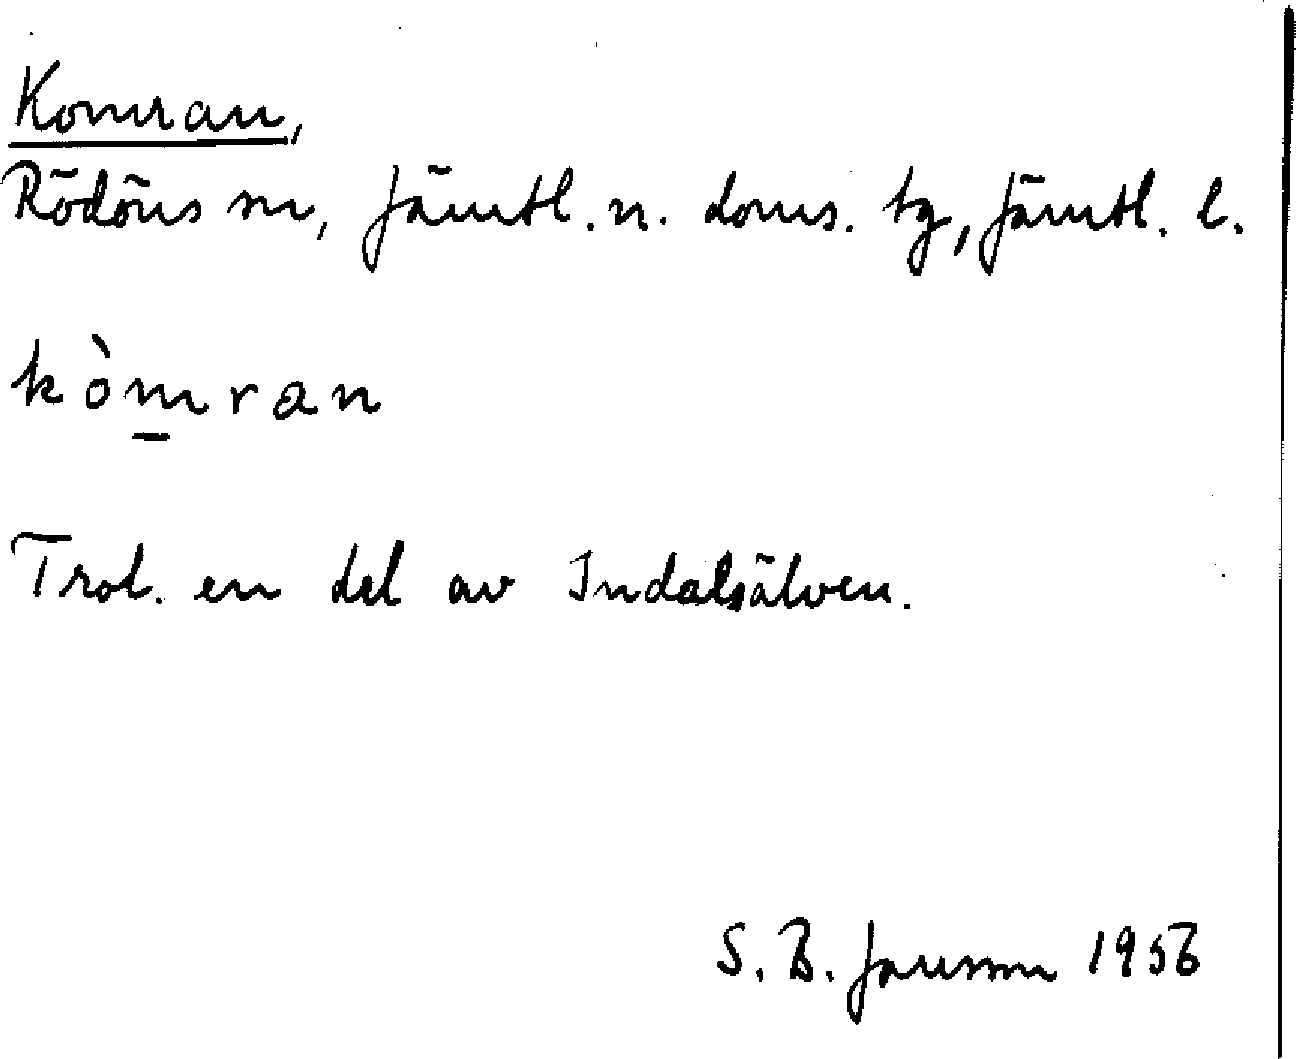 Komran,
Rödöns sn, Jämtl. n. doms. tg, Jämtl. l.
kòm̲ran
Trol. en del av Indalsälven.
S. B. Jansson 1956